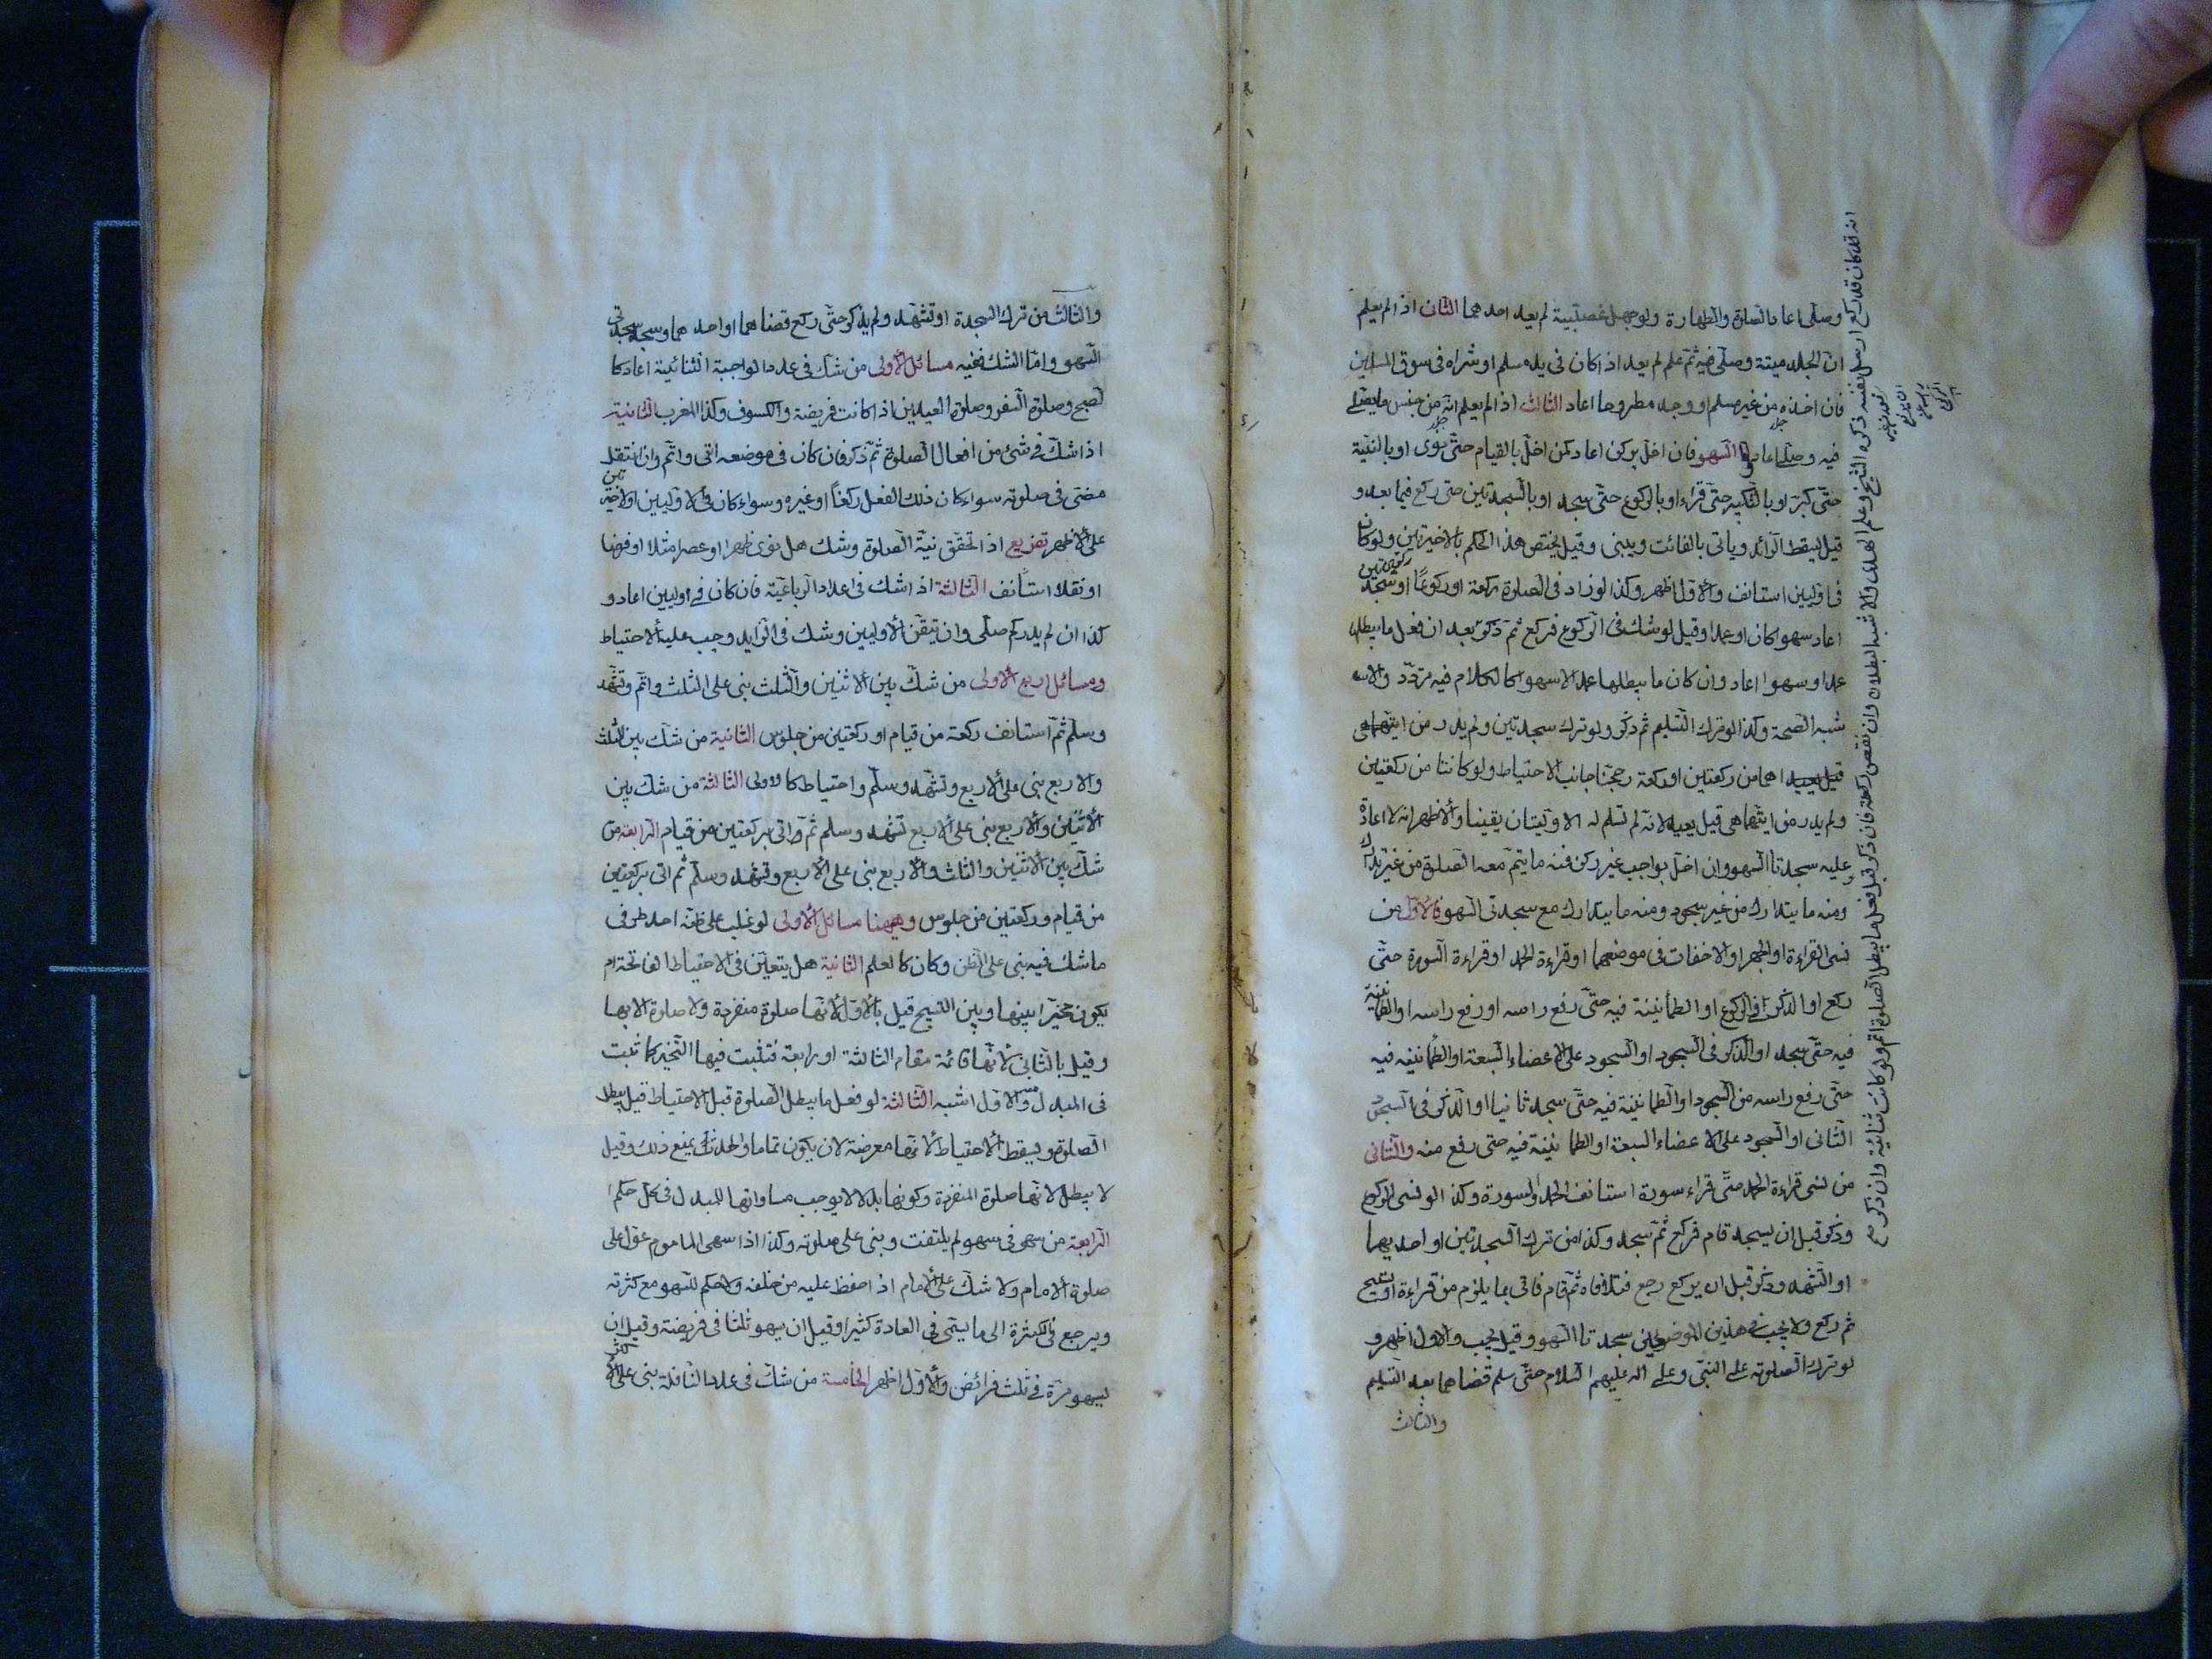 وصلّى اعاد الصلوة والطهارة ولو جهل غصبيّته لم يعد احدهما الثانى اذا لم يعلم
انّ الجلد ميتة وصلّى فيه ثمّ علم لم يعد اذا كان فى يد مسلم او شراه فى سوق المسلمين
فان اخذه من غير مسلم او وجد مطروحا اعاد الثالث اذا لم يعلم انّه من جنس ما يصلّى
فيه وصلّى اعاد وامّا السهو فان اخلّ بركن اعاد كمن اخلّ بالقيام حتّى نوى او بالنيّة
حتّى كبّر او بالتكبير حتّى قراء او بالركوع حتّى سجد او بالسجدتين حتى ركع فيما بعد و
قيل يسقط الزائد وياتى بالفائت ويبنى وقيل يختص هذا الحكم بالاخيرتين ولو كان
فى اوليين استانف والاوّل اظهر وكذا لو زاد فى الصلوة ركعة او ركوعًا او سجدتين
اعاد سهوا كان او عمدا وقيل لو شك فى الركوع فركع ثمّ ذكر بعد ان فعل ما يبطلها
عمدا وسهوا اعاد وان كان ما يبطلها عمدا لا سهوا كالكلام فيه تردّد والاشبه
شبه الصحة وكذا لو ترك التسليم ثم ذكر ولو ترك سجدتين ولم يدر من ايتهما هى
قيل يعيد اهما من ركعتين او ركعة رجحنا جانب الاحتياط ولو كانتا من ركعتين
ولم يدر من ايتهما هى قيل يعيد لانّه لم تسلم له الاوليتان يقينا والاظهر انه لا اعادة
و عليه سجدتا السهو وان اخلّ بواجب غير ركن فمنه ما يتمّ معه الصلوة من غير تدارك
ومنه ما يتدارك من غير سجود ومنه ما يتدارك مع سجدتى السهو فالاوّل من
نسى القراءة او الجهر او الاخفات فى موضعهما او قراءة الحمد او قراءة السورة حتّى
ركع او الذكر فى الركوع او الطمأنينة فيه حتّى رفع راسه او رفع راسه او الطمانينة
فيه حتّى سجد او الذكر فى السجود او السجود على الاعضاء السبعة او الطمانينه فيه
حتّى رفع راسه من السجود او الطمانينة فيه حتّى سجد ثانيا او الذكر فى السجود
الثانى او السجود على الاعضاء السبعة او الطمانينة فيه حتى رفع منه والثانى
من نسى قراءة الحمد حتّى قراء سورة استانف الحمد والسورة وكذا لو نسى الركوع
وذكر قبل ان يسجد قام فركع ثمّ سجد وكذا من ترك السجدتين او احديهما
او التشهد وذكر قبل ان يركع رجع فتلافاه ثمّ قام فاتى بما يلزم من قراءة او تسبيح
ثم ركع ولا يجب فى هذين الموضعين سجدتا السهو وقيل يجب والاول اظهر و
لو ترك الصلوته على النبى وعلى اله عليهم السلام حتّى سلم قضاهما بعد التسليم
والثالث
انه قد كان قد ركع ارسل نفسه ذكره الشيخ وعلم الهدى والاشبه البطلان وان نقص ركعة فان ذكر قبل فعل ما يبطل الصلوة اتم ولو كانت ثنائية وان ذكر
والثالث من ترك السجدة او تشهد ولم يذكر حتّى ركع قضاهما او احدهما وسجد سجدتى
السهو وامّا الشك ففيه مسائل الاولى من شكّ فى عدد الواجبة الثنائية اعاد كا
لصبح وصلوة السفر وصلوة العيدين اذا كانت فريضة والكسوف وكذا المغرب الثانية
اذا شكّ فى شئ من افعال الصلوة ثمّ ذكر فان كان فى موضعه اتى واتم وان انتقل
مضى فى صلوته سواء كان ذلك الفعل ركنًا او غيره وسواء كان فى الاوليين او الاخيرتين
على الاظهر تفريع اذا تحقق نيّة الصلوة وشك هل نوى ظهرا او عصرا مثلا او فرضا
او نفلا استأنف الثالثة اذا شك فى اعداد الرباعيّة فان كان فى اوليين اعاد و
كذا ان لم يدر كم صلّى وان تيقّن الاوليين وشك فى الزايد وجب عليه الاحتياط
ومسائل اربع الاولى من شكّ بين الاثنين والثلث بنى على الثلث واتم وتشهد
وسلم ثمّ استانف ركعة من قيام او ركعتين من جلوس الثانية من شكّ بين الثلث
والاربع بنى على الاربع وتشهد وسلّم واحتياط كالاولى الثالثة من شكّ بين
الاثنين والاربع بنى على الاربع تشهد وسلم ثم واتى بركعتين من قيام الرابعة من
شكّ بين الاثنين والثلث والاربع بنى على الاربع وتشهد وسلّم ثم اتى بركعتين
من قيام وركعتين من جلوس وههنا مسائل الاولى لو غلب على ظنّه احد طرفى
ما شك فيه بنى على الظن وكان كالعلم الثانية هل يتعيّن فى الاحتياط الفاتحة ام
يكون مخيّرا بينها وبين التسبيح قيل بالاوّل لانّها صلوة منفردة ولا صلوة الا بها
وقيل بالثانى لانّها قائمة مقام الثالثة او رابعة فتثبت فيها التخيير كما ثبت
فى المبدل منه والاوّل اشبه الثالثة لو فعل ما يبطل الصلوة قبل الاحتياط قيل يبطل
الصلوة ويسقط الاحتياط لانّها معرضة لان يكون تماما والحدث يمنع ذلك وقيل
لا يبطل لانّها صلوة المنفردة وكونها بدلا لا يوجب مساواتها للمبدل فى كل حكم
الرابعة من سهى فى سهو لم يلتفت وبنى على صلوته وكذا اذا سهى الماموم عوّل على
صلوة الامام ولا شكّ على الامام اذا حفظ عليه من خلفه ولا حكم للسهو مع كثرته
ويرجع فى الكثرة الى ما يسمى فى العادة كثيرا وقيل ان يسهو ثلثا فى فريضة وقيل ان
يسهو مرّة فى ثلث فرائض والاوّل اظهر الخامسة من شكّ فى عدد النافلة بنى على الاكثر